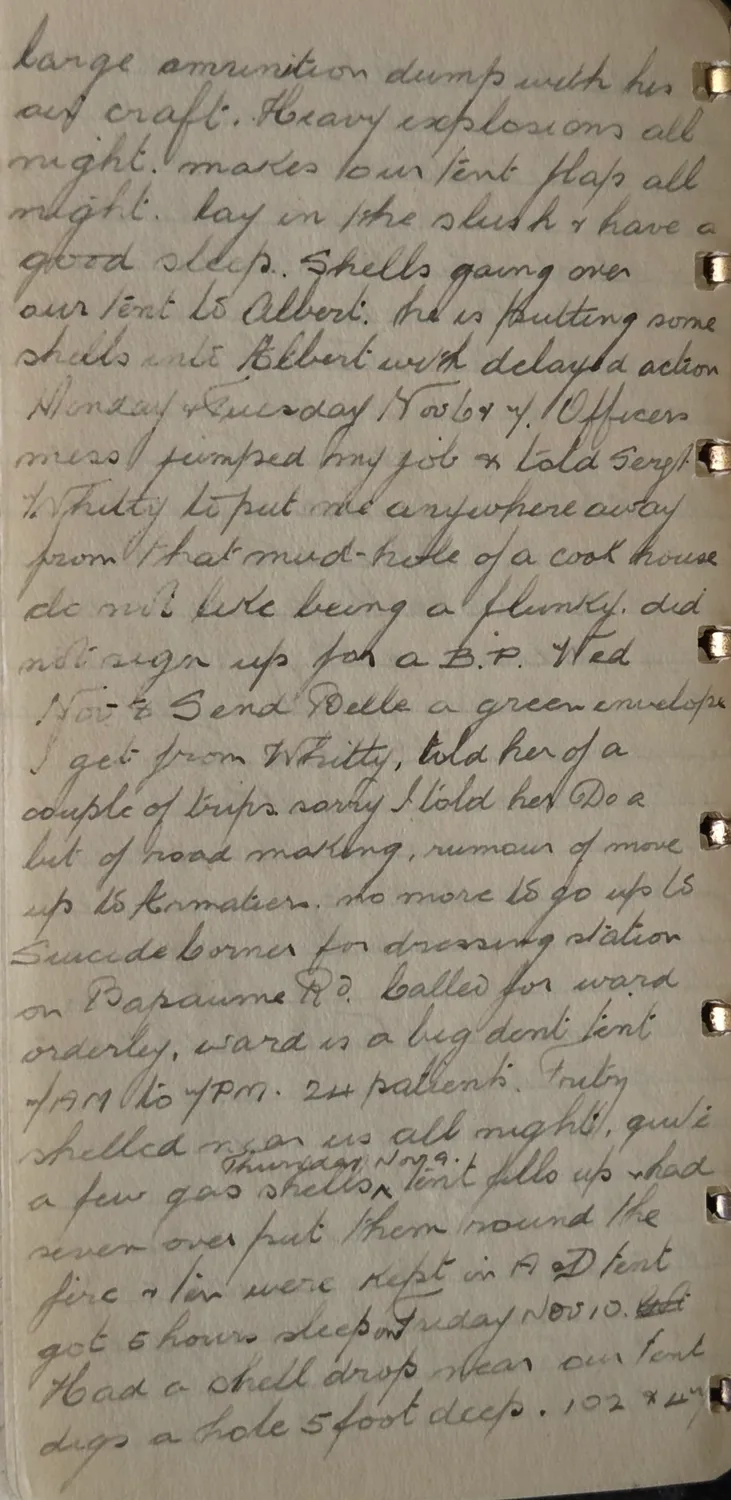 large ammunition dump with his
air craft. Heavy explosions all
night. makes our tent flap all
night. lay in the slush & have a
good sleep. Shells going over
our tent to Albert. he is putting some
shells into Albert with delayed action
Monday & Tuesday Nov 6 & 7. Officers
mess jumped my job & told Sergt
Whitty to put me anywhere away
from that mud-hole of a cook house
do not like being a flunky. did
not sign up for a B.P. Wed
Nov 8 Send Belle a green envelope
I get from Whitty, told her of a
couple of trips sorry I told her Do a
bit of road making, rumour of move
up to Armatiers. no more to go up to
Suicide Corner for dressing station
on Bapaume Rd. Called for ward
orderley, ward is a big dent tent
7AM to 7PM. 24 patients. Fritz
shelled near us all night, quite
Thursday Nov 9.
a few gas shells ^ tent fills up & had
seven over put them round the
fire & ten were kept in A & D tent
got 5 hours sleep on Friday Nov 10.
Had a shell drop near our tent
digs a hole 5 foot deep. 102 &